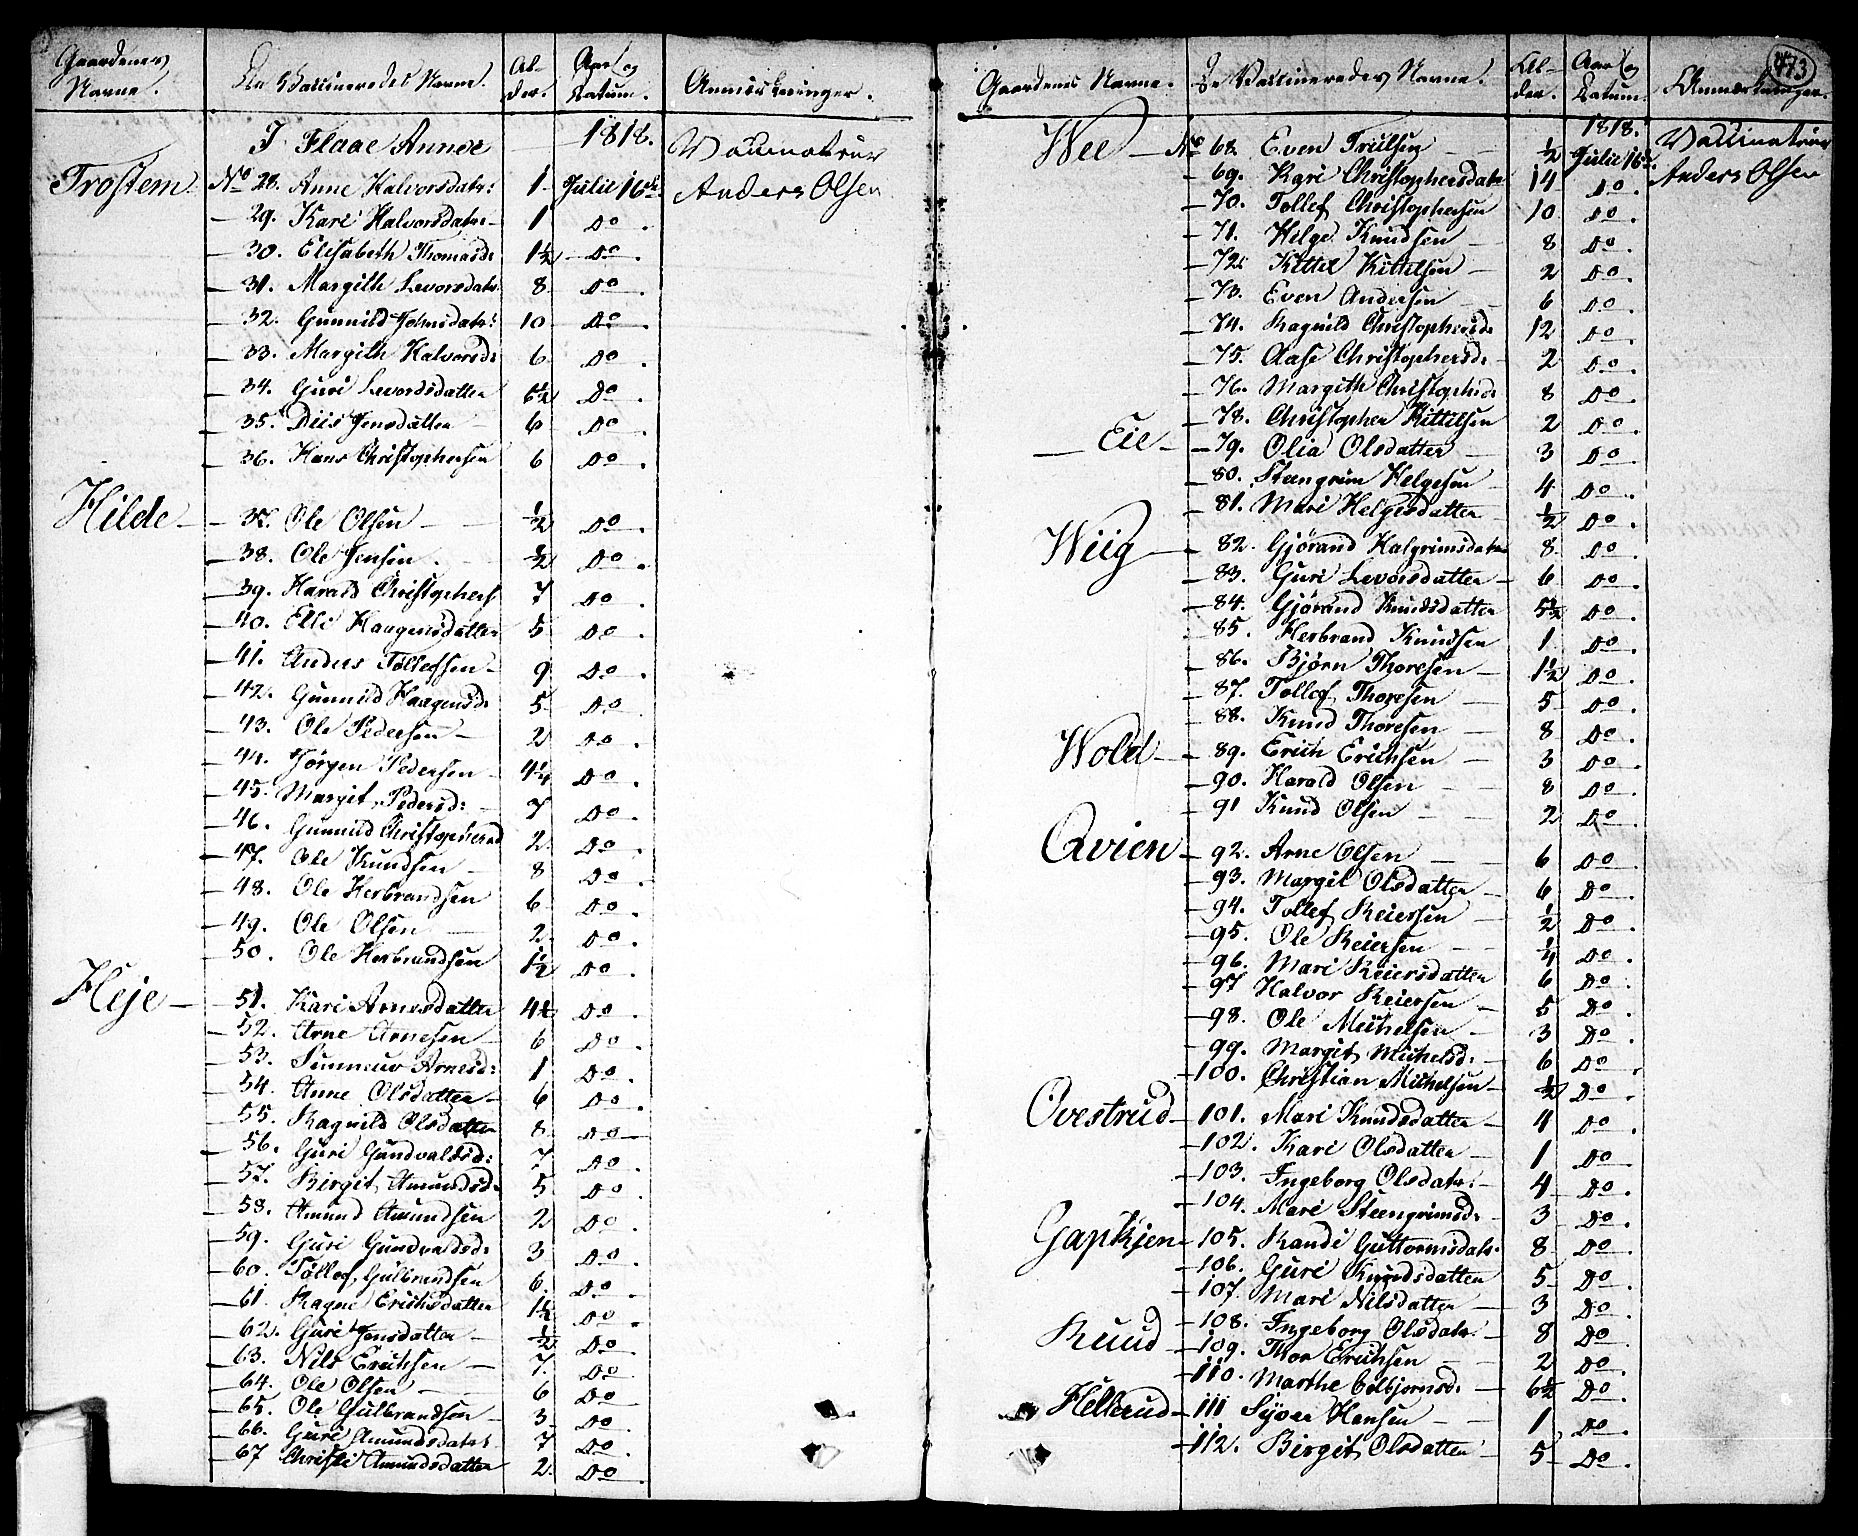 Gaardenes Navne. De Vaccineredes Navne. Al-der. Aar og Datum. Anmærkninger.
I Flaae Annex 1818. Vaccinateur
Trostem No 28. Anne Halvorsdatr: 1 Julii 16de Anders Olsen
29. Kari Halvorsdatr 1 Do
30. Elisabeth Thomasd: 1½ Do
31. Margith Levorsdatr 8 Do
32. Gunnild Johnsdatr: 10 Do
33. Margith Halvorsd: 6 Do
34. Guri Levordsdatter 6½ Do
35. Diis Jensdatter 6 Do
36. Hans Christophersen 6 Do
Hilde 37. Ole Olsen ½ Do
38. Ole Jensen ½ Do
39. Harald Christophers 7 Do
40. Elli Haagensdatter 5 Do
41. Anders Tollefsen 9 Do
42. Gunnild Haagensd: 5 Do
43. Ole Pedersen 2 Do
44. Jørgen Pedersen 4¼ Do
45. Margit Pedersd: 7 Do
46. Gunnild Christophersd 2 Do
47. Ole Knudsen 8 Do
48. Ole Herbrandsen 6 Do
49. Ole Olsen 2 Do
50. Ole Herbrandsen 1½ Do
Heje 51. Kari Arnesdatter 4½ Do
52. Arne Arnesen 6 Do
53. Sunneuv Arnesd: 1 Do
54. Anne Olsdatter 6 Do
55. Ragnild Olsdatter 8 Do
56. Guri Gundvaldsd: 7 Do
57. Birgit Amundsd: 5 Do
58. Amund Amundsen 2 Do
59. Guri Gundvaldsd: 3 Do
60. Tollef Gulbrandsen 6 Do
61. Ragne Erichsdatter 1½ Do
62. Guri Jensdatter ½ Do
63. Nils Erichsen 7 Do
64. Ole Olsen 6 Do
65. Ole Gulbrandsen 3 Do
66. Guri Amundsdatr: 7 Do
67 Christi Amundsdatter 2 Do
473
Gaardenes Navne. De Vaccineredes Navne. Al-der. Aar og Datum. Anmærkninger.
1818. Vaccinateur
Wee No 68. Even Truilsen ½ Julii 16de Anders Olsen
69. Kari Christophersdatr 14 Do
70. Tollef Christophersen 10 Do
71. Helge Knudsen 8 Do
72. Kittel Kittelsen 2 Do
73. Even Andersen 6 Do
74. Ragnild Christophersd: 12 Do
75. Aase Christophersd: 2 Do
76. Margith Christophersd 8 Do
78. Christopher Kittelsen 2 Do
Eie 79. Olia Olsdatter 3 Do
80. Steengrim Helgesen 4 Do
81. Mari Helgesdatter ½ Do
Wiig 82. Gjørand Halgrimsdatr 8 Do
83. Guri Levorsdatter 6 Do
84. Gjørand Knudsdatter 5½ Do
85. Herbrand Knudsen 1 Do
86. Bjørn Thoresen 1½ Do
87. Tollef Thoresen 5 Do
88. Knud Thoresen 8 Do
Wold 89. Erich Erichsen 3 Do
90. Harald Olsen 8 Do
91 Knud Olsen 2 Do
Qvien 92. Arne Olsen 6 Do
93. Margit Olsdatter 6 Do
94. Tollef Reiersen ½ Do
95. Ole Reiersen ¼ Do
96. Mari Reiersdatter 6 Do
97 Halvor Reiersen 5 Do
98. Ole Michelsen 3 Do
99. Margit Michelsd: 6 Do
100. Christian Michelsen ½ Do
Ovestrud 101. Mari Knudsdatter 4 Do
102. Kari Olsdatter 1 Do
103. Ingeborg Olsdatr: 4 Do
104. Mari Steengrimsd: 3 Do
Gapkjen 105. Randi Guttormsdatr. 8 Do
106. Guri Knudsdatter 5 Do
107. Mari Nilsdatter 3 Do
Ruud 108. Ingeborg Olsdatr: 8 Do
109. Thor Erichsen 2 Do
110. Marthe Colbjørnsd: 6½ Do
Hellerud 111 Syver Hansen 1 Do
112. Birgit Olsdatter 5 Do